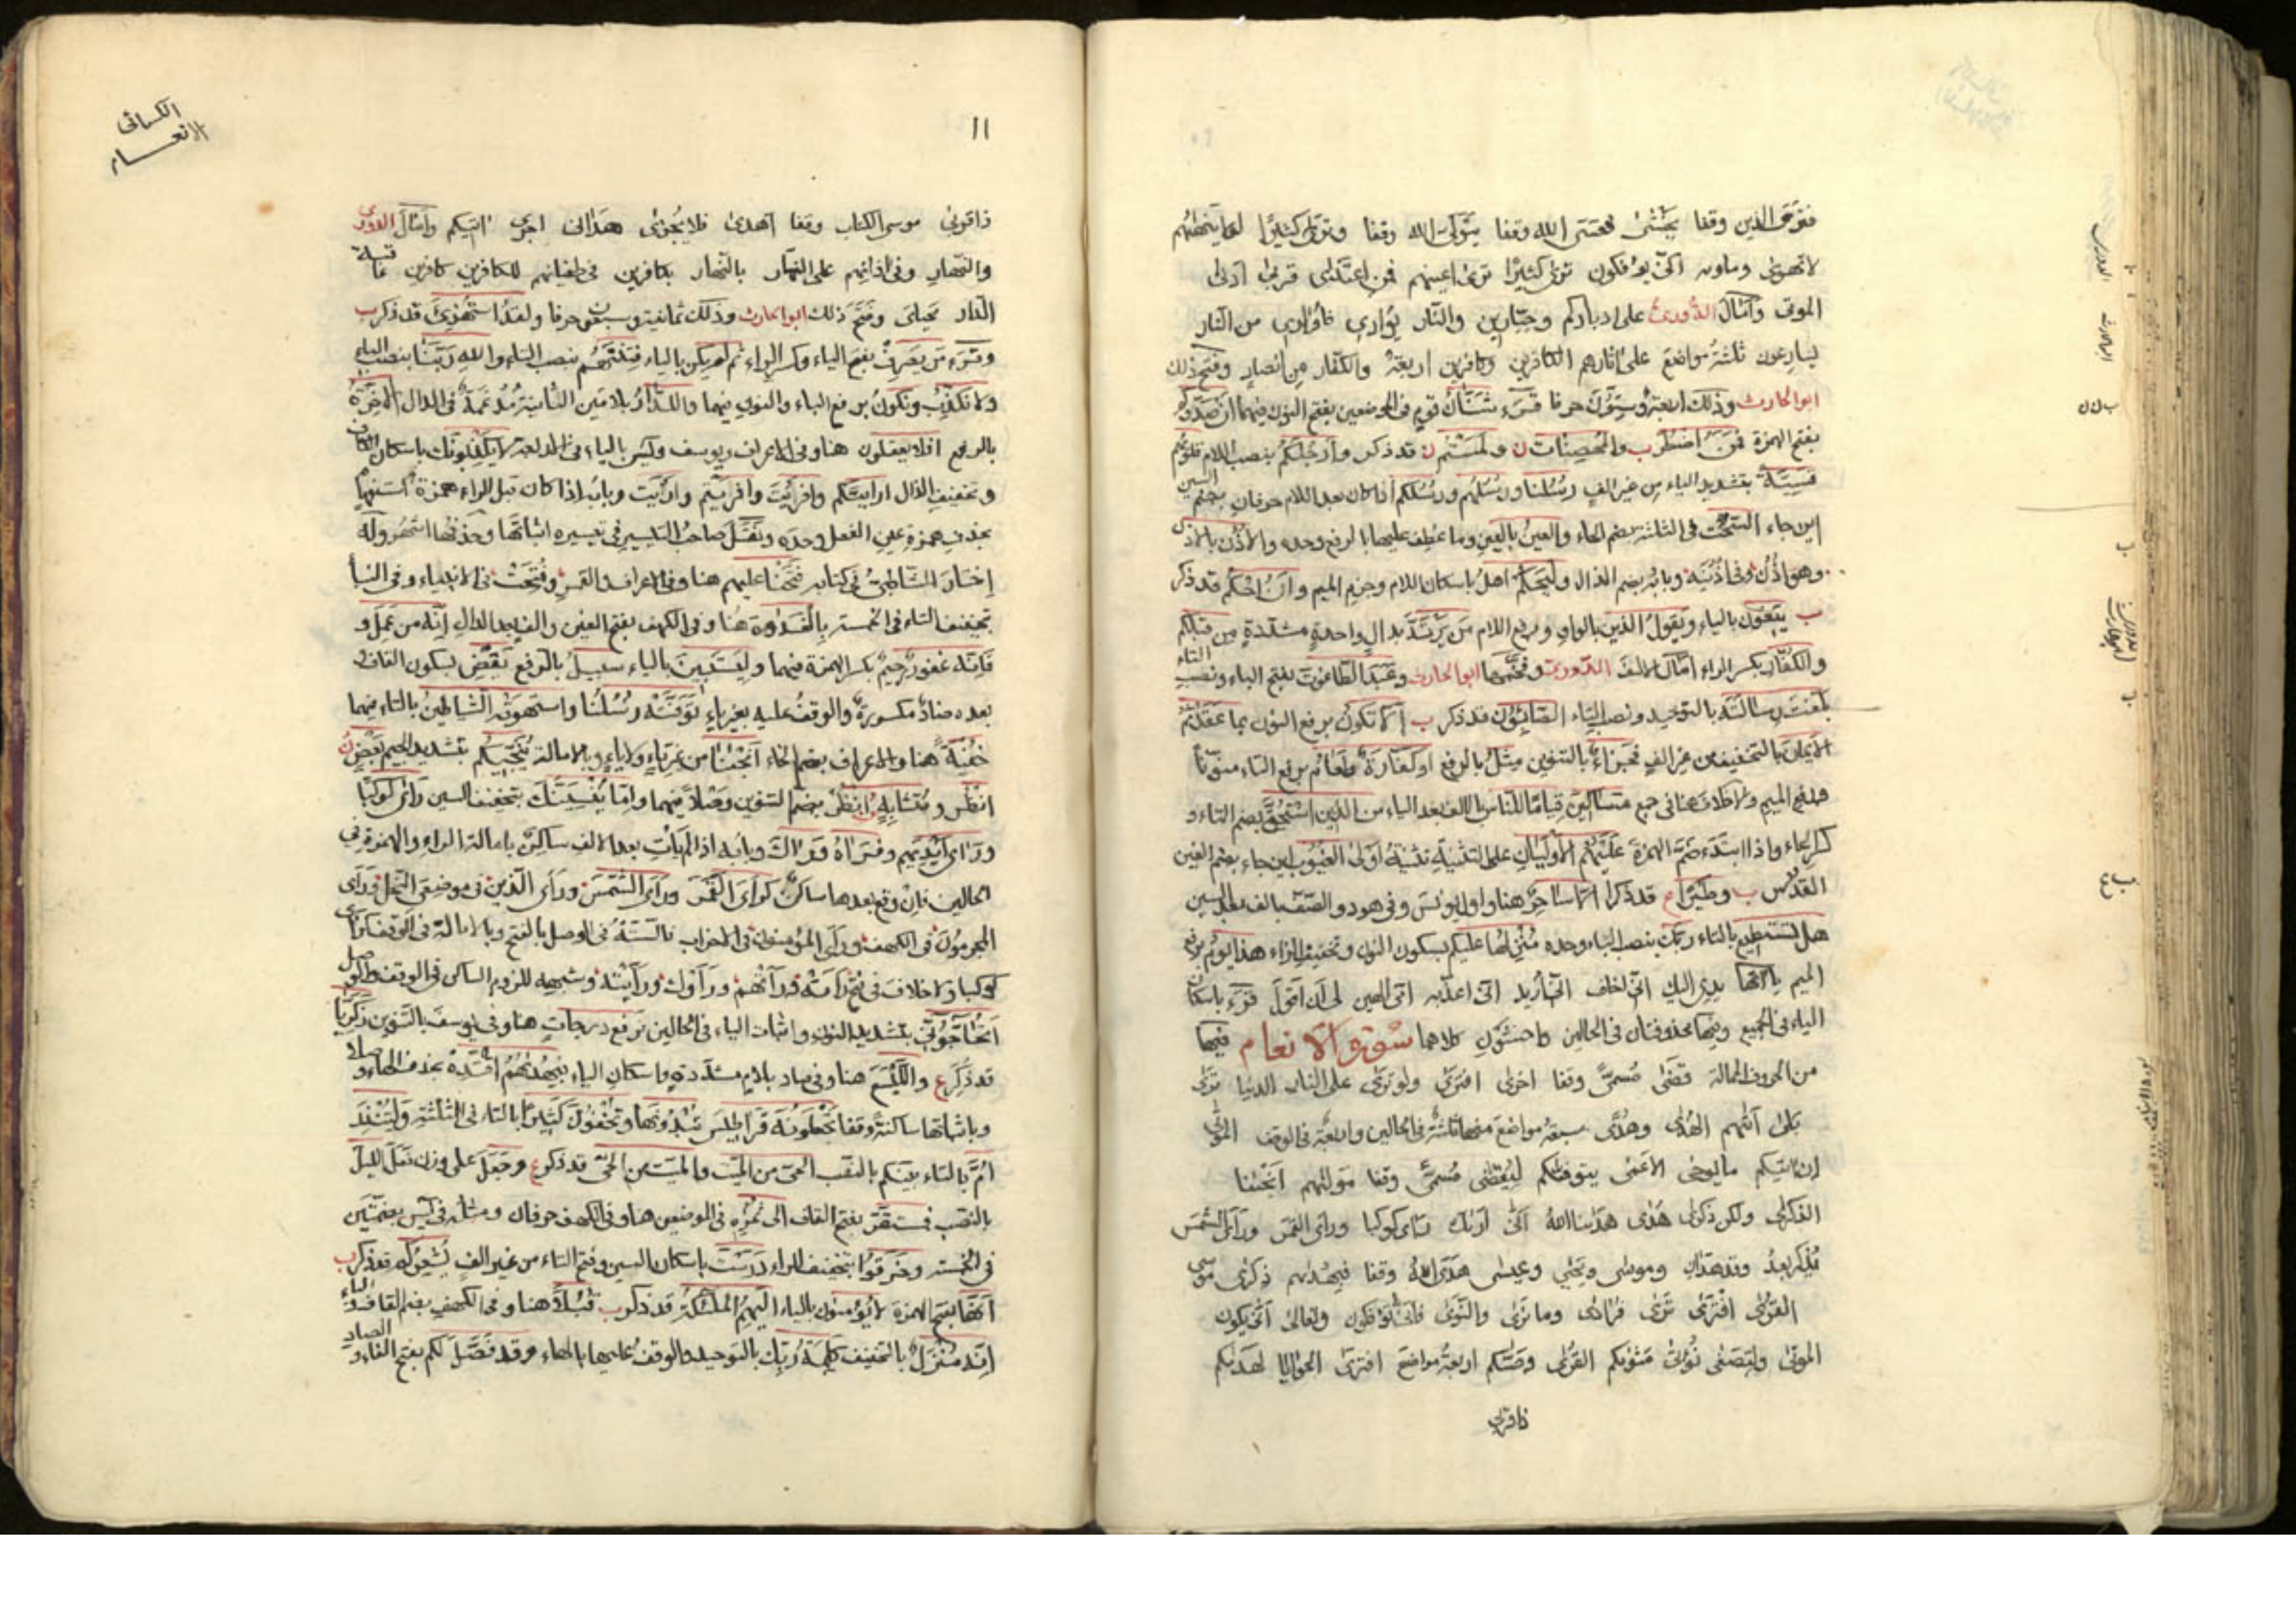 فترى الذين وقفا يخشى فعسى الله وقفا يتولى الله وقفا وترى كثيرا لولا ينهيهم
لا تهوى وماويه انى يؤفكون ترى كثيرا ترى اعينهم فمن اعتدى قربى ادنى
الموتى وامال الدورى على ادباركم وجبارين والنار يوارى فاوارى من انصار
يسارعون ثلثة مواضع على اثارهم الكافرين وكافرين اربعة والكفار من انصار وفتح ذلك
ابو الحارث وذلك اربعة وستون حرفا قرء شنان قوم فى الموضعين بفتح النون فيهما ان صدوكم
بفتح الهمزة فمن اضطر ب والمحصنات ن ولمستم ن قد ذكر وارجلكم بنصب اللام قلوبهم
قسية بتشديد الياء من غير الف رسلنا ورسلهم ورسلكم اذا كان بعد اللام حرفان بضم السين
اين جاء السحت فى الثلثة بضم الحاء والعين بالعين وما عطف عليها بالرفع وحده والاذن بالاذن
وهو اذن وفى اذنيه وبابه بضم الذال وليحكم اهل باسكان اللام وجزم الميم وان احكم قد ذكر
ب يبغون بالياء ويقول الذين بالواو ورفع اللام من يرتد بدال واحدة مشددة من قبلكم
والكفار بكسر الراء امال الالف الدورى وفتحها ابو الحارث وعبد الطاغوت بفتح الباء ونصب التاء
بلغت رسالته بالتوحيد ونصب التاء الصابئون قد ذكر ب الا تكون برفع النون بما عقدتم
الايمان بالتخفيف من غير الف فجزاء بالتنوين مثل بالرفع او كفارة طعام برفع التاء منونا
ورفع الميم ولا خلاف هنا فى جمع مساكين قياما للناس بالالف بعد الياء من الذين استحق بضم التاء و
كسر الحاء واذا ابتدء ضم الهمزة عليهم الاوليان على التثنية تثنية اولى الغيوب اين جاء بضم الغين
القدس ب وطيرا م قد ذكرا الا ساحر هنا واول يونس وفى هود والصف بالف بعد السين
هل تستطيع بالتاء ربك بنصب الباء وحده منزلها عليكم بسكون النون وتخفيف الزاء هذا يوم برفع
الميم ياآتها يدى اليك انى اخاف انى اريد انى اعذبه امى الهين لى ان اقول قرء باسكان
الياء فى الجميع وفيها محذوفتان فى الحالين واخشون كلاهما سورة الانعام فيها
من الحروف الممالة قضى مسمى وقفا اخرى افترى ولو ترى على النار الدنيا ترى
بلى اتيهم الهدى وهدى سبعة مواضع منها ثلثة فى الحالين واربعة فى الوقف الموتى
ان اتيكم ما يوحى الاعمى يتوفيكم ليقضى مسمى وقفا موليهم انجينا
الذكرى ولكن ذكرى هدى هدينا الله انى اريك راى كوكبا وراى القمر وراى الشمس
وقد هدان وموسى ويحيى وعيسى هدى الله وقفا فبهديهم ذكرى موسى
القرى افترى ترى فرادى وما نرى والنوى فانى تؤفكون وتعالى انى يكون
الموتى ولتصغى نؤتى مثويكم القرى وصيكم اربعة مواضع افترى الحوايا لهديكم
ذا قربى
الكسائى
الانعام
١١
ذا قربى موسى الكتاب وقفا اهدى فلا يجزى هدانى اخرى اتيكم وامال الدورى
والنهار وفى اذانهم على النار بالنهار بكافرين فى طغيانهم للكافرين كافرين عاقبة
الدار محياى وفتح ذلك ابو الحارث وذلك ثمانية وسبعون حرفا ولقد استهزئ قد ذكر ب
وقرء من يصرف بفتح الياء وكسر الراء ثم لم يكن بالياء فتنتهم بنصب التاء والله ربنا بنصب الباء
ولا نكذب ونكون برفع الباء والنون فيهما وللدار بلامين الثانية مدغمة فى الدال الاخرة
بالرفع افلا يعقلون هنا وفى الاعراف ويوسف ويس بالياء فى الاربعة لا يكذبونك باسكان الكاف
وتخفيف الذال ارايتكم وافرايت وافرايتم وارايت وبابه اذا كان قبل الراء همزة استفهام
بحذف همزة عين الفعل وحده ونقل صاحب التيسير فى تيسيره اثباتها وحذفها اشهر وله
اختار الشاطبى فى كتابه فتحنا عليهم هنا وفى الاعراف والقمر وفتحت فى الانبياء وفى النبأ
بتخفيف التاء فى الخمسة بالغدوة هنا وفى الكهف بفتح الغين والف بعد الدال انه من عمل و
فانه غفور رحيم بكسر الهمزة فيهما وليستبين بالياء سبيل بالرفع يقض بسكون القاف و
بعده ضاد مكسورة والوقف عليه بغير ياء توفته رسلنا واستهوته الشياطين بالتاء فيهما
خفية هنا والاعراف بضم الخاء انجينا من غير تاء ولا ياء وبالامالة ينجيكم بتشديد الجيم بعض ن
انظر و متشابه انظر بضم التنوين وصلا فيهما واما ينسينك بتخفيف السين راى كوكبا
وراى ايديهم وفراه وراك وبابه اذا لم يات بعد الالف ساكن بامالة الراء والهمزة فى
الحالين فان وقع بعدها ساكن كراى القمر وراى الشمس وراى الذين فى موضعى النحل وراى
المجرمون فى الكهف وراى المؤمنون فى الاحزاب فالستة فى الوصل بالفتح وبالامالة فى الوقف كراى
كوكبا ولا خلاف فى فتح رأته ورأتهم ورأوك ورأيته وشبهه للزوم الساكن فى الوقف والوصل
اتحاجونى بتشديد النون واثبات الياء فى الحالين نرفع درجات هنا وفى يوسف بالتنوين زكريا
قد ذكر ع والليسع هنا وفى صاد بلام مشددة واسكان الياء فبهديهم اقتده بحذف الهاء وصلا
وباثباتها ساكنة وقفا تجعلونه قراطيس تبدونها وتخفون كثيرا بالتاء فى الثلثة ولتنذر
ام بالتاء بينكم بالنصب الحى من الميت والميت من الحى قد ذكر ع وجعل على وزن فعل الليل
بالنصب فمستقر بفتح القاف الى ثمره فى الموضعين هنا وفى الكهف حرفان ومثله فى يس بضمتين
فى الخمسة وخرقوا بتخفيف الراء درست باسكان السين وفتح التاء من غير الف يشعركم قد ذكر ب
انها بفتح الهمزة لا يؤمنون بالياء اليهم الملئكة قد ذكر ب قبلا هنا وفى الكهف بضم القاف والباء
انه منزل بالتخفيف كلمة ربك بالتوحيد والوقف عليها بالهاء وقد فصل لكم بفتح الفاء والصاد